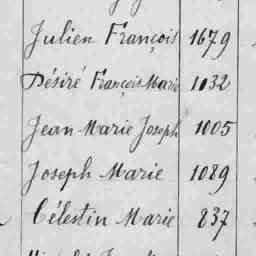 Julien François 1679
Désiré François Marie 1032
Jean Marie Joseph 1005
Joseph Marie 1089
Célestin Marie 837